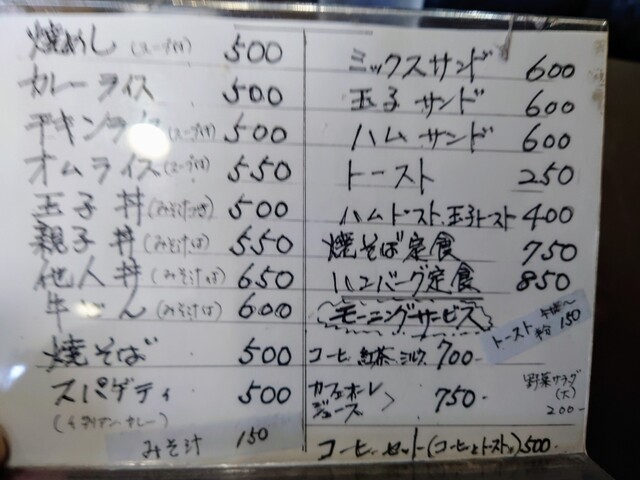 焼めし (スープ付) 500
カレーライス 500
チキンライス (スープ付) 500
オムライス (スープ付) 550
玉子丼 (みそ汁つき) 500
親子丼 (みそ汁付) 550
他人丼 (みそ汁付) 650
牛どん (みそ汁付) 600
焼そば 500
スパゲティ 500
(イタリアン・カレー)
みそ汁 150
ミックスサンド 600
玉子サンド 600
ハムサンド 600
トースト 250
ハムトースト、玉子トースト 400
焼そば定食 750
ハンバーグ定食 850
モーニングサービス
トースト 150
コーヒ、紅茶、ミルク 700-
カフェオーレ
ジュース > 750-
野菜サラダ
(大)
200-
コーヒーセット(コーヒとトースト) 500-